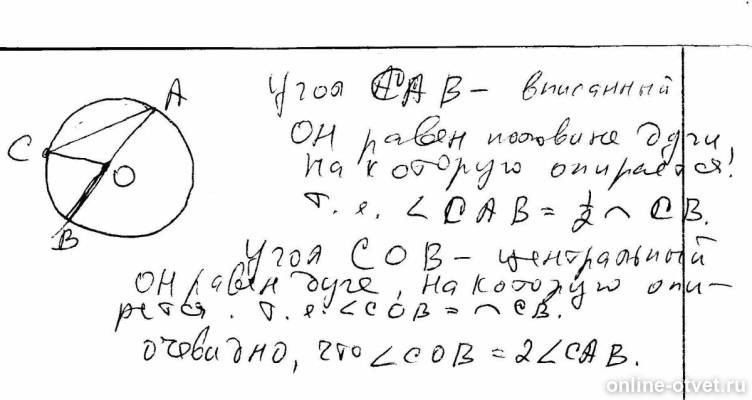 A
C
O
B
Угол CАВ – вписанный
Он равен половине дуги,
на которую опирается!
т.е. ∠CAB = ½ ◠ CB.
Угол COB – центральный
Он равен дуге, на которую опи-
рется. т.е. ∠COB = ◠CB.
Очевидно, что ∠COB = 2∠CAB.
online-otvet.ru